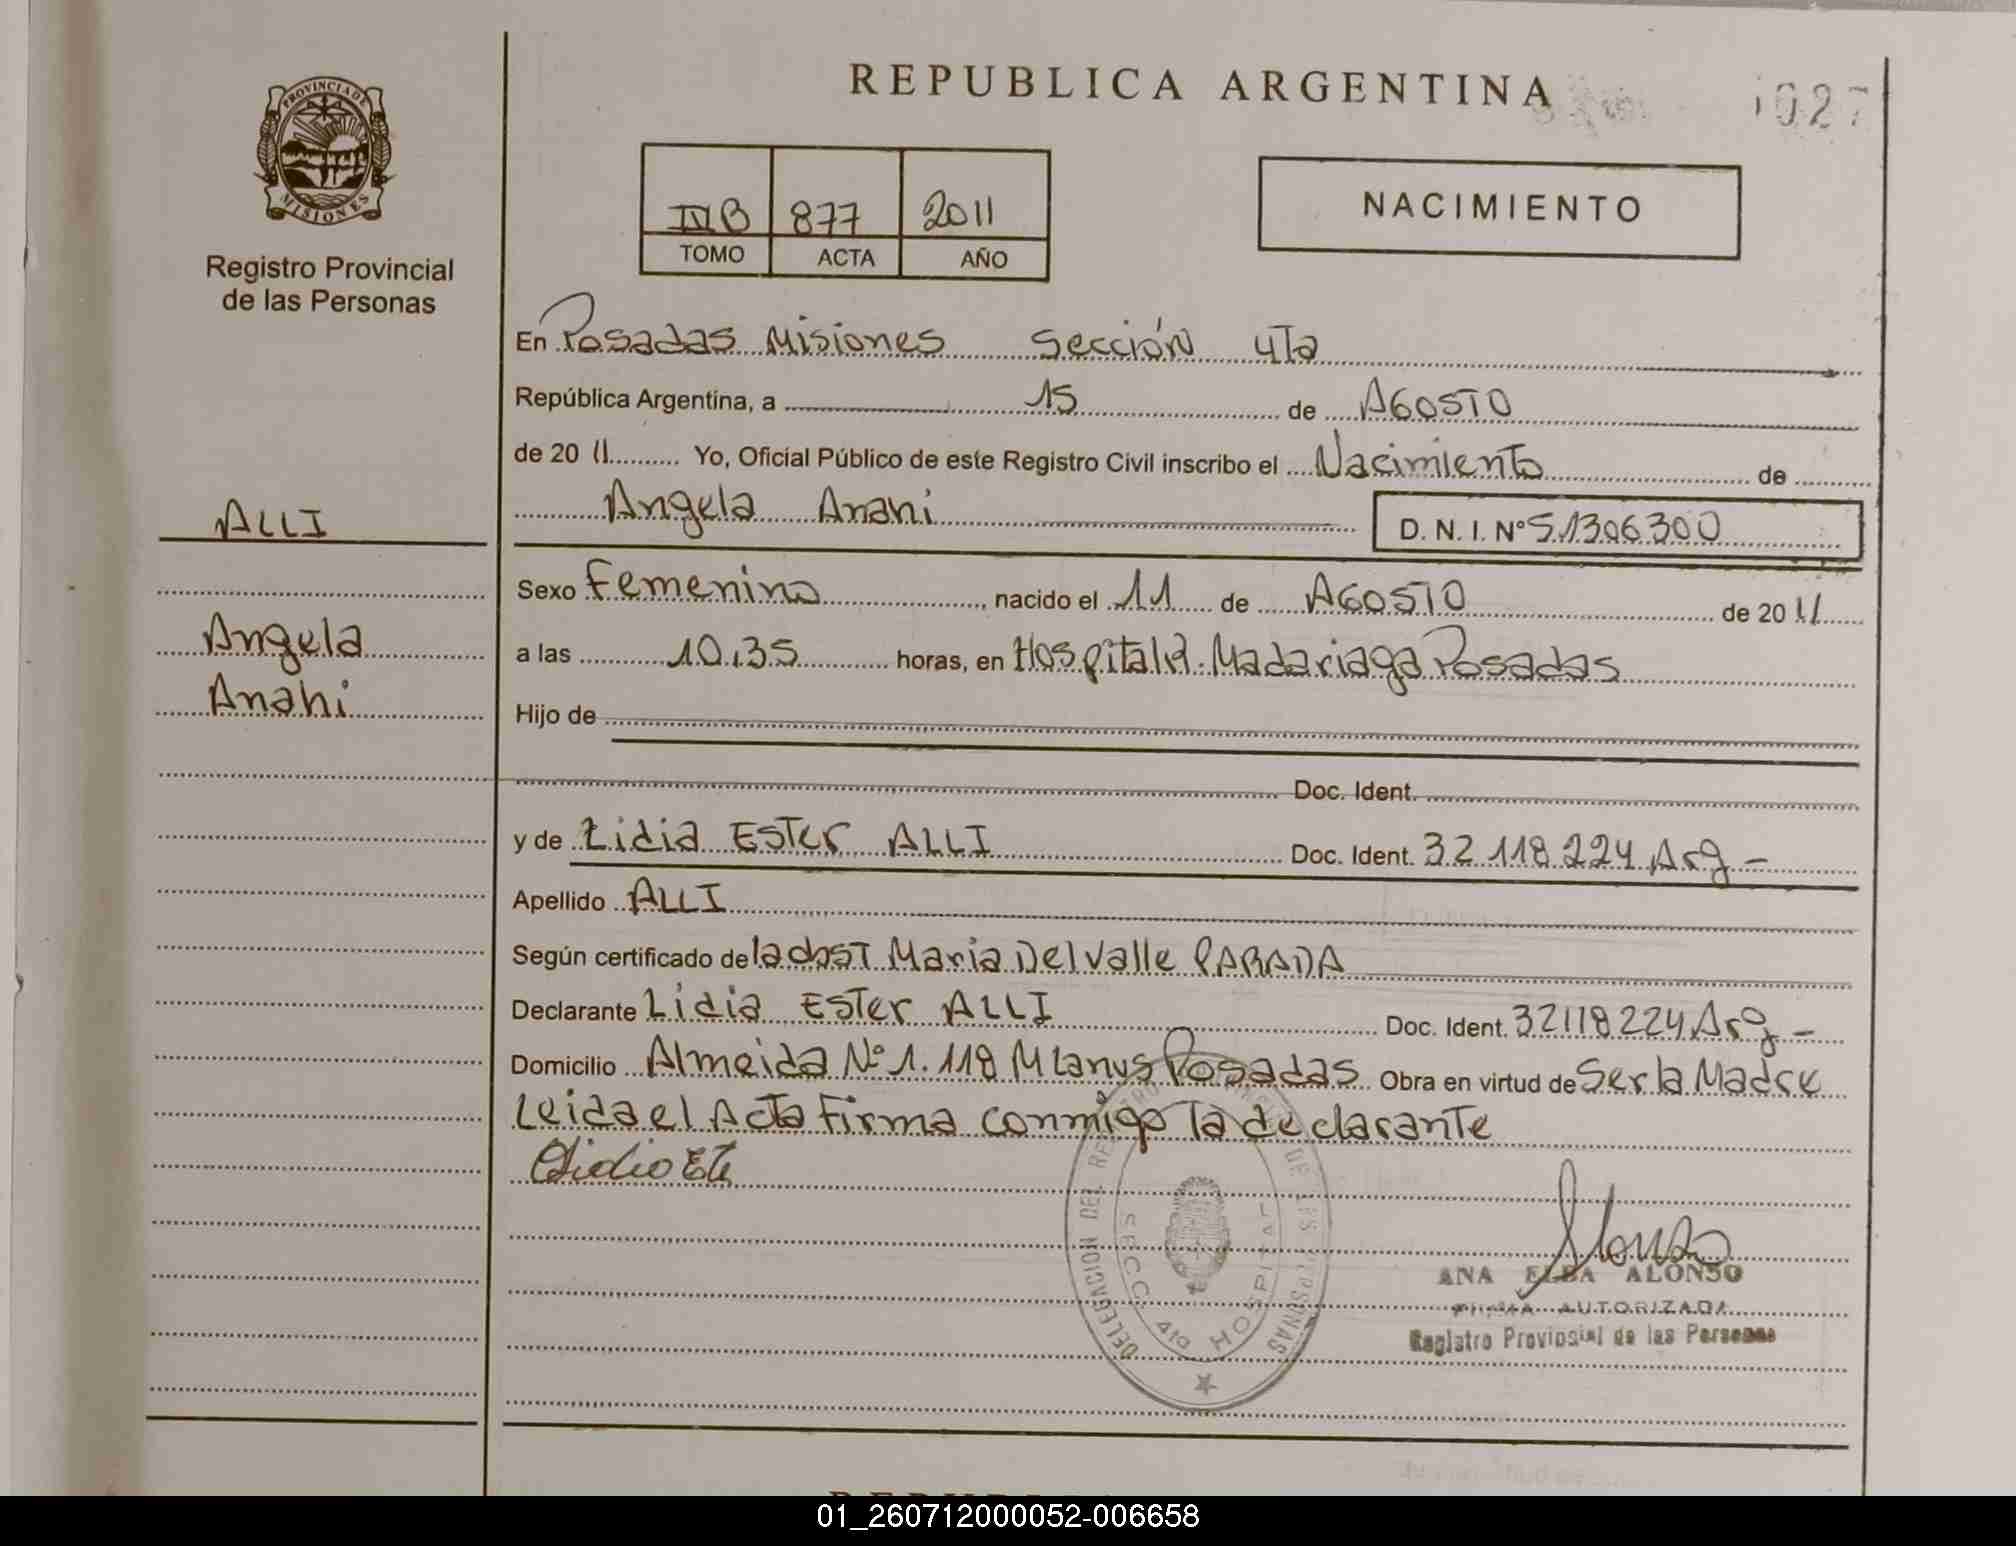 PROVINCIA DE
MISIONES
Registro Provincial
de las Personas
ALLI
Angela
Anahi
REPUBLICA ARGENTINA
1027
III B 877 2011
TOMO ACTA AÑO
NACIMIENTO
En Posadas Misiones Sección 4Ta
República Argentina, a 15 de AGOSTO
de 2011 Yo, Oficial Público de este Registro Civil inscribo el Nacimiento de
Angela Anahi D. N. I. Nº 51306300
Sexo Femenino, nacido el 11 de AGOSTO de 2011
a las 10:35 horas, en Hospital R. Madariaga Posadas
Hijo de
Doc. Ident.
y de Lidia ESTer ALLI Doc. Ident. 32.118.224 Arg -
Apellido ALLI
Según certificado de la obsT Maria Del Valle PARADA
Declarante Lidia ESTer ALLI Doc. Ident. 32118224 Arg -
Domicilio Almeida Nº 1.118 M Lanus Posadas Obra en virtud de Ser la Madre
Leida el Acta Firma conmigo la declarante
DELEGACION DEL REGISTRO DE LAS PERSONAS
SECC. 4ta HOSPITAL
ANA ELBA ALONSO
FIRMA AUTORIZADA
Registro Provincial de las Personas
01_260712000052-006658